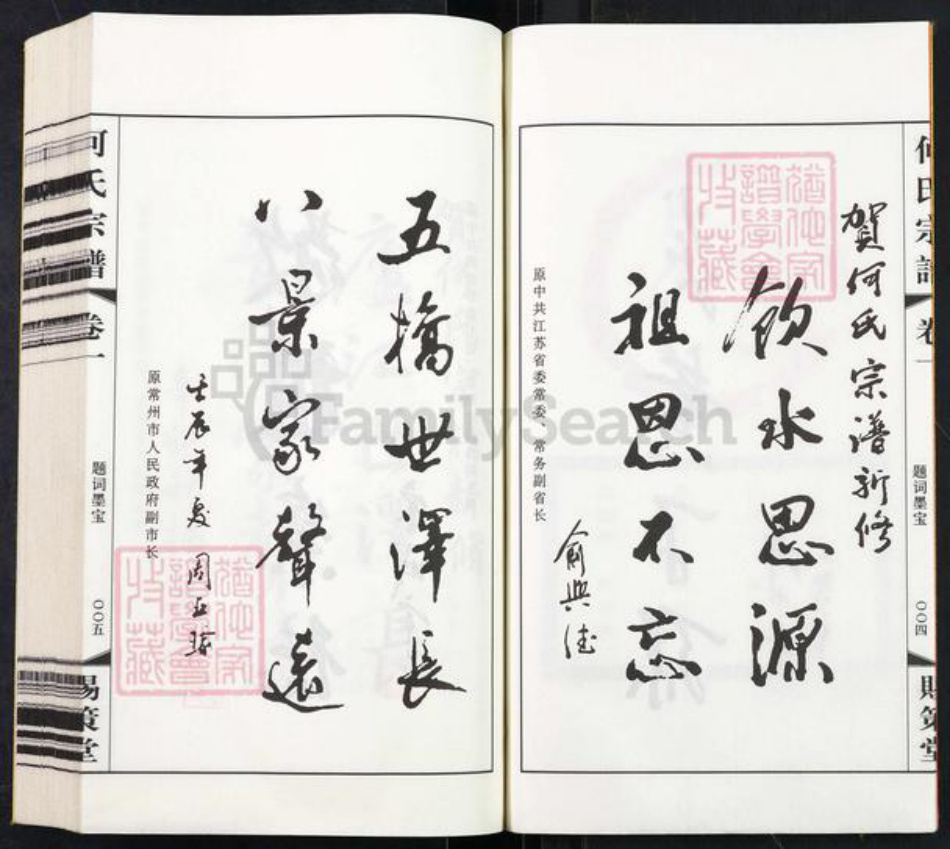 何氏宗譜 卷一
题词墨宝
〇〇四
賜策堂
賀何氏宗谱新修
饮水思源
祖恩不忘
俞兴德
原中共江苏省委常委、常务副省长
猶他家
譜學會
收藏
五橋世澤長
八景家聲遠
壬辰年夏 周亚瑜
原常州市人民政府副市长
猶他家
譜學會
收藏
何氏宗譜 卷一
题词墨宝
〇〇五
賜策堂
FamilySearch